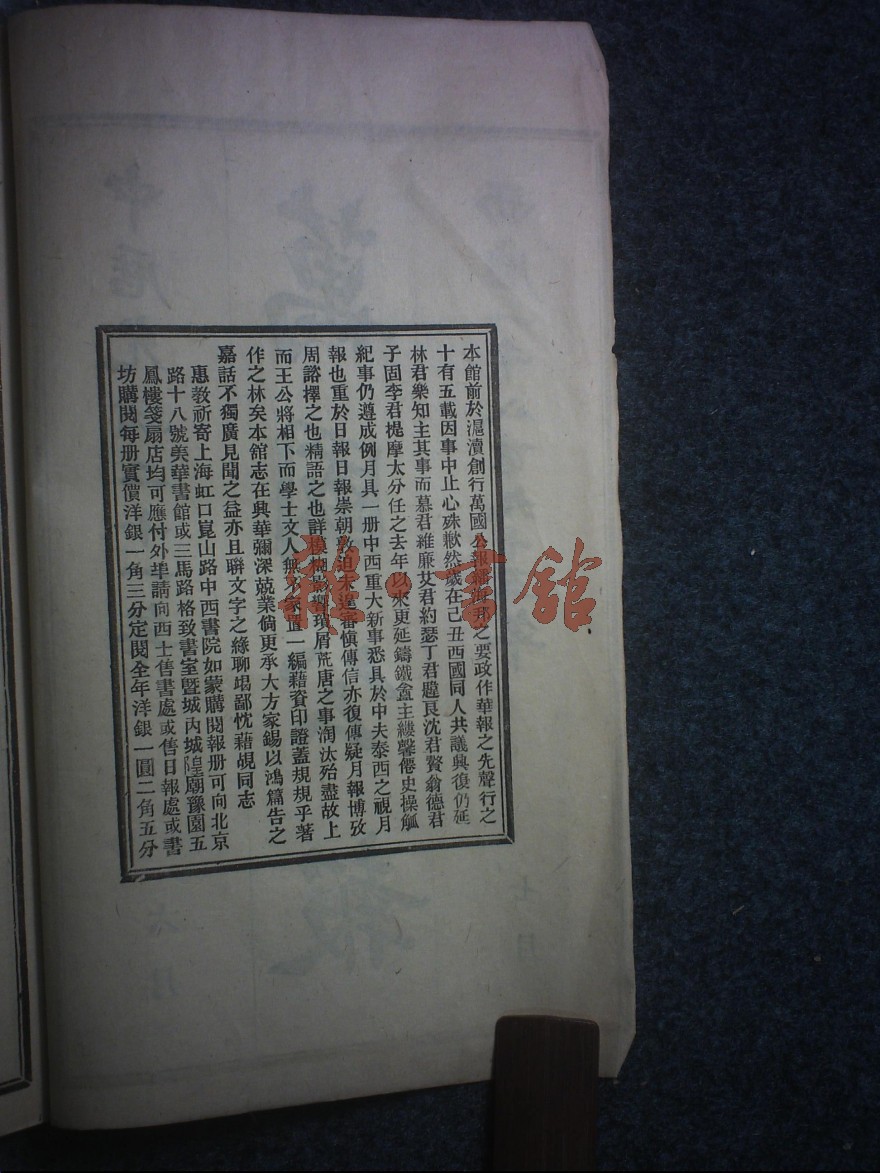 本館前於滬瀆創行萬國公報播海邦之要政作華報之先聲行之
十有五載因事中止心殊歉然歲在己丑西國同人共議興復仍延
林君樂知主其事而慕君維廉艾君約瑟丁君韙良沈君贊翁德君
子固李君提摩太分任之去年以來更延鑄鐵盦主縷馨僊史操觚
紀事仍遵成例月具一册中西重大新事悉具於中夫泰西之視月
報也重於日報日報崇朝敦迫未遑審愼傳信亦復傳疑月報博攷
周諮擇之也精語之也詳模糊影響瑣屑荒唐之事淘汰殆盡故上
而王公將相下而學士文人無不家置一編藉資印證蓋規規乎著
作之林矣本館志在興華彌深兢業倘更承大方家錫以鴻篇告之
嘉話不獨廣見聞之益亦且聯文字之緣聊竭鄙忱藉覘同志
惠教祈寄上海虹口崑山路中西書院如蒙購閱報册可向北京
路十八號美華書館或三馬路格致書室暨城內城隍廟豫園五
鳳樓箋扇店均可應付外埠請向西士售書處或售日報處或書
坊購閱每册實價洋銀一角三分定閱全年洋銀一圓二角五分